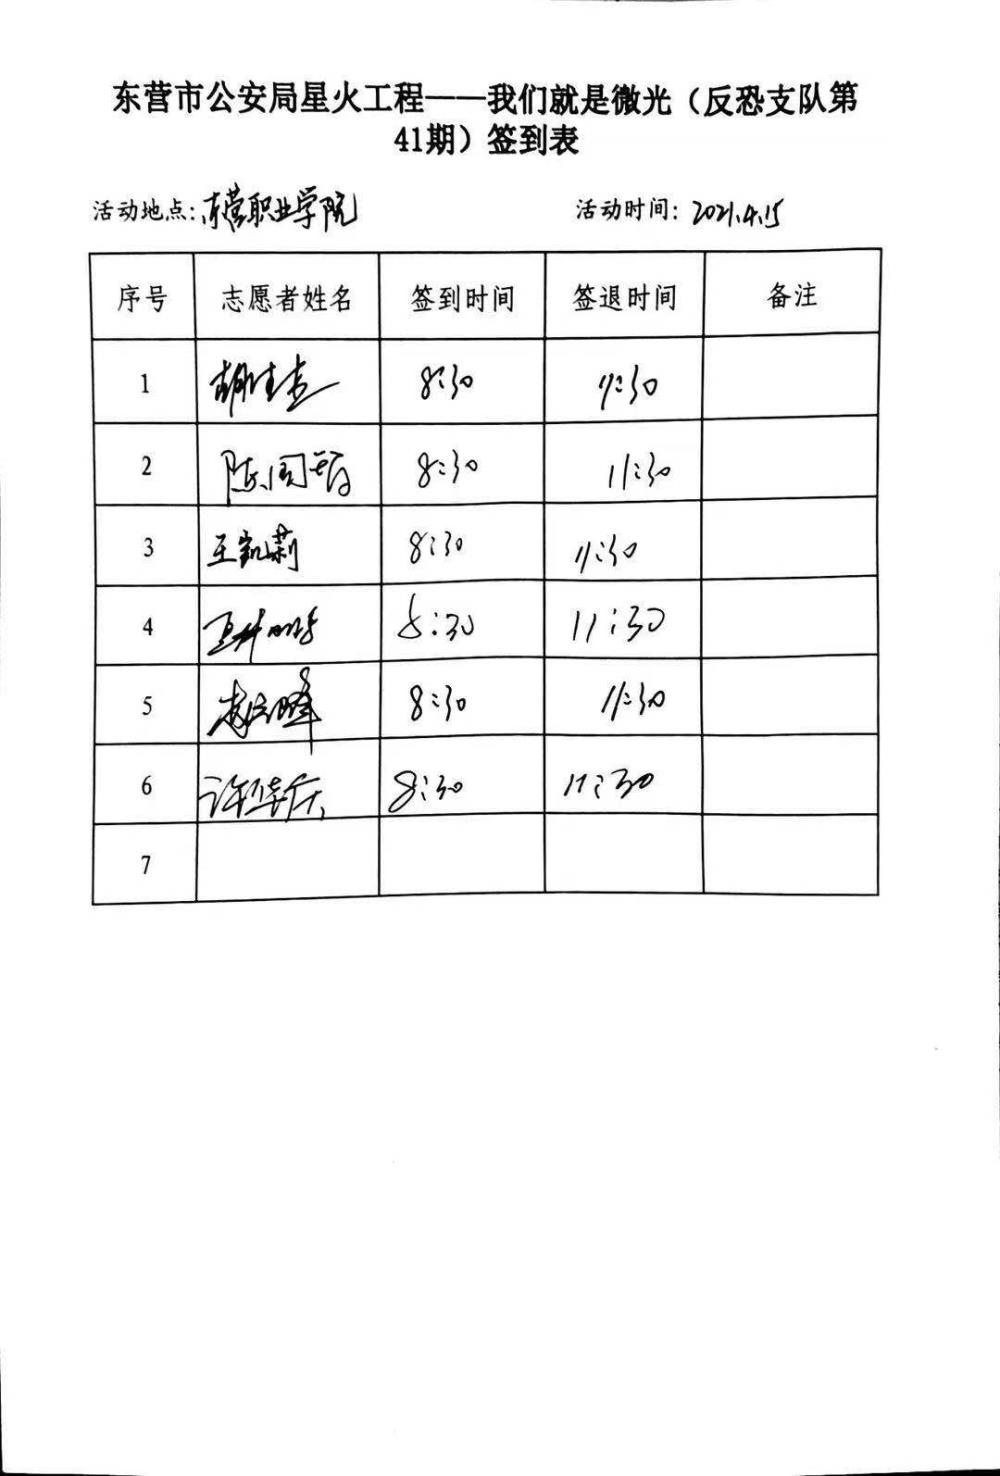 东营市公安局星火工程——我们就是微光（反恐支队第
41期）签到表
活动地点:东营职业学院 活动时间: 2021.4.15
序号 志愿者姓名 签到时间 签退时间 备注
1 8:30 11:30
2 8:30 11:30
3 王凯莉 8:30 11:30
4 8:30 11:30
5 8:30 11:30
6 8:30 11:30
7